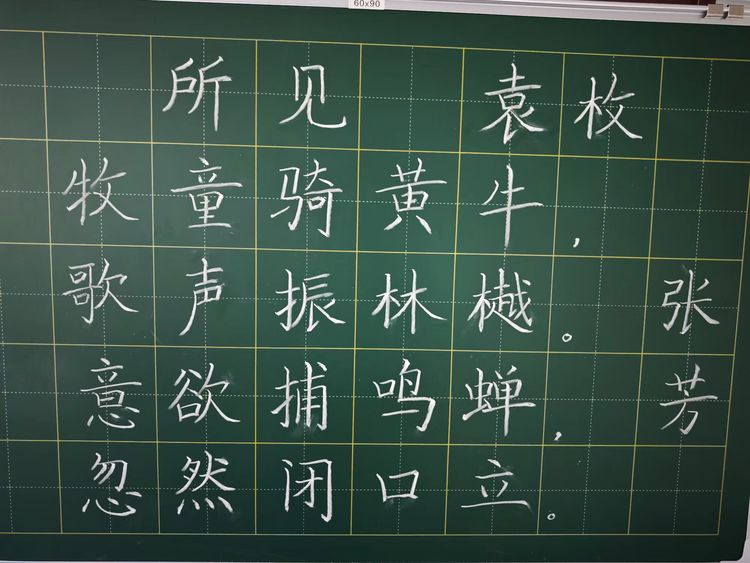 60x90
所见 袁枚
牧童骑黄牛，
歌声振林樾。
意欲捕鸣蝉，
忽然闭口立。
张芳